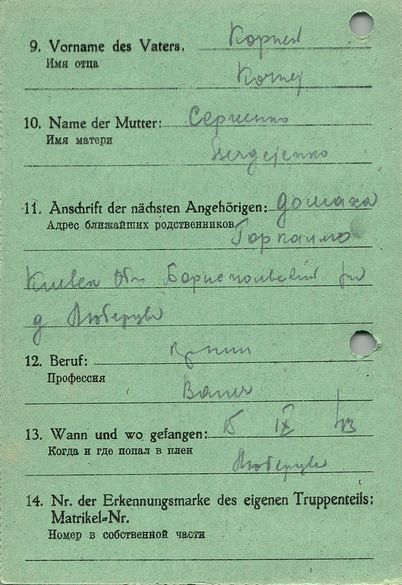 9. Vorname des Vaters. Корней
Имя отца
Korney
10. Name der Mutter: Сергиенко
Имя матери
Sergejenko
11. Anschrift der nächsten Angehörigen: домаха
Адрес ближайших родственников
Киевск Обл Бориспольский
д
12. Beruf:
Профессия
Bauer
13. Wann und wo gefangen: 15 IX 43
Когда и где попал в плен
14. Nr. der Erkennungsmarke des eigenen Truppenteils:
Matrikel-Nr.
Номер в собственной части